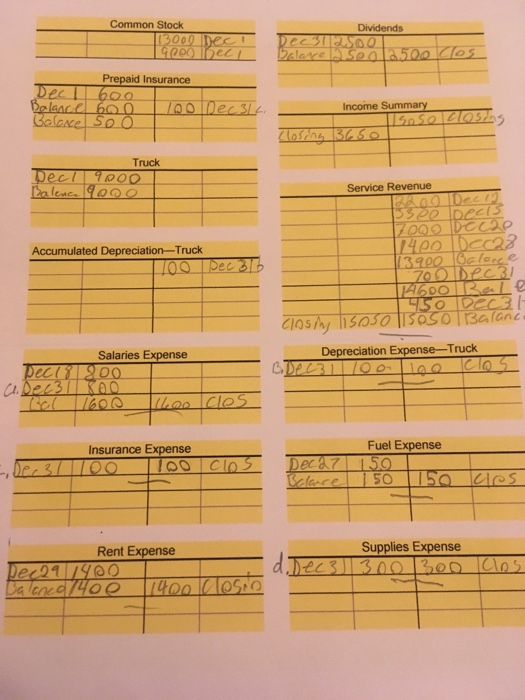 Common Stock
13000 Dec 1
9000 Dec 1
Prepaid Insurance
Dec 1 600
Balance 600 100 Dec 31 c.
Balance 500
Truck
Dec 1 9000
Balance 9000
Accumulated Depreciation—Truck
100 Dec 31 b
Salaries Expense
Dec 18 800
a. Dec 31 800
Bal 1600 1600 clos
Insurance Expense
Dec 31 100 100 clos
Rent Expense
Dec 29 1400
Balance 1400 1400 Closin
Dividends
Dec 31 2500
Balance 2500 2500 Clos
Income Summary
15050 closing
Closing 3650
Service Revenue
2200 Dec 12
3300 Dec 15
7000 Dec 20
1400 Dec 28
13900 Balance
700 Dec 31
14600 Bal e
450 Dec 31
closing 15050 15050 Balanc
Depreciation Expense—Truck
Dec 31 100 100 clos
Fuel Expense
Dec 27 150
Balance 150 150 clos
Supplies Expense
d. Dec 31 300 300 Clos